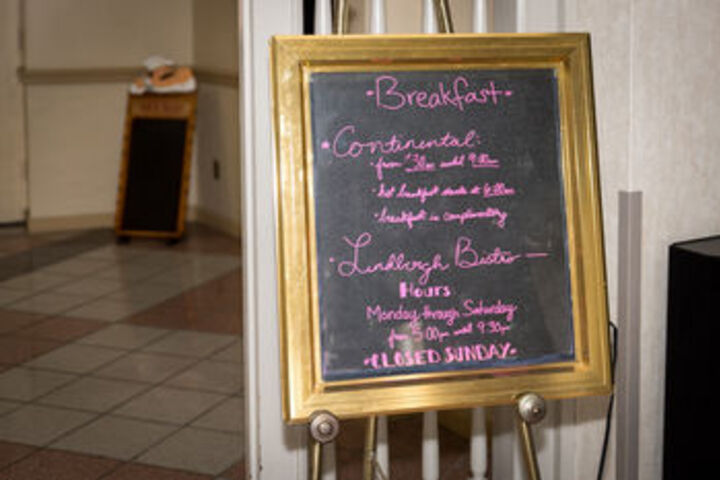 Breakfast
Continental:
from until 9:00am
hot breakfast starts at 6:00am
breakfast is complimentary
Lindbergh Bistro
Hours
Monday through Saturday
from 5:00pm until 9:30pm
CLOSED SUNDAY